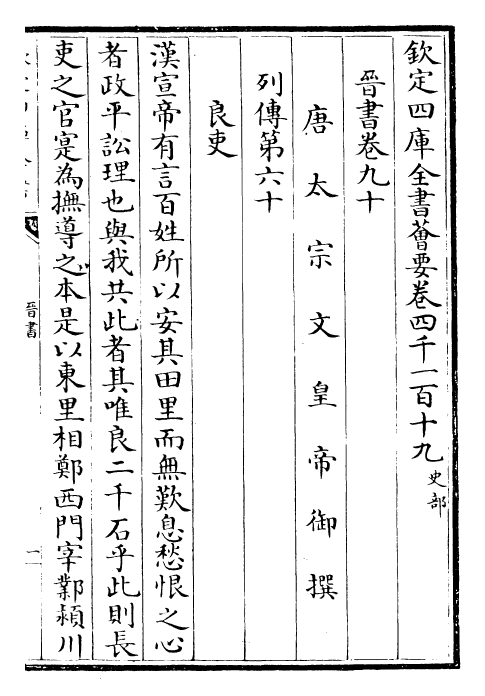 欽定四庫全書薈要卷四千一百十九 史部
晉書卷九十
唐太宗文皇帝御撰
列傳第六十
良吏
漢宣帝有言百姓所以安其田里而無歎息愁恨之心
者政平訟理也與我共此者其唯良二千石乎此則長
吏之官寔為撫導之本是以東里相鄭西門宰鄴潁川
晉書